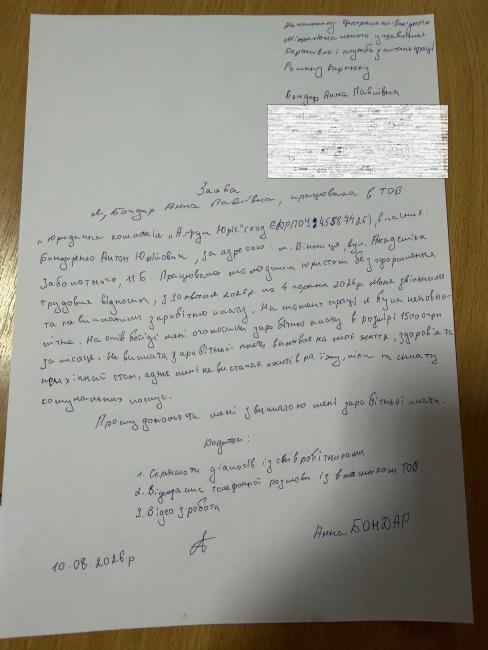 Начальнику Центрально-Західного
Міжрегіонального управління
Державної служби з питань праці
Роману Карпюку
Бондар Анна Павлівна
Заява
Я, Бондар Анна Павлівна, працювала в ТОВ
"Юридична компанія "Агрум Юріс" (код ЄДРПОУ 45587425), власник:
Бондаренко Антон Юрійович, за адресою: м. Вінниця, вул. Академіка
Заболотного, 11Б. Працювала молодшим юристом без оформлення
трудових відносин, з квітня 2026р. по 4 серпня 2026р. Мене звільнили
та не виплатили заробітну плату. На момент праці я була неповно-
літня. На співбесіді мені оголосили заробітну плату в розмірі 15000грн
за місяць. Не виплата заробітної плати вплив на моє життя, здоров'я та
психічний стан, адже мені не вистачає коштів на їжу, ліки та сплату
комунальних послуг.
Прошу допомогти мені з виплатою мені заробітньої плати.
Додатки:
1. Скріншоти діалогів із співробітниками
2. Відеозапис телефонної розмови із власником ТОВ
3. Відео з роботи
10.08.2026р
Анна БОНДАР